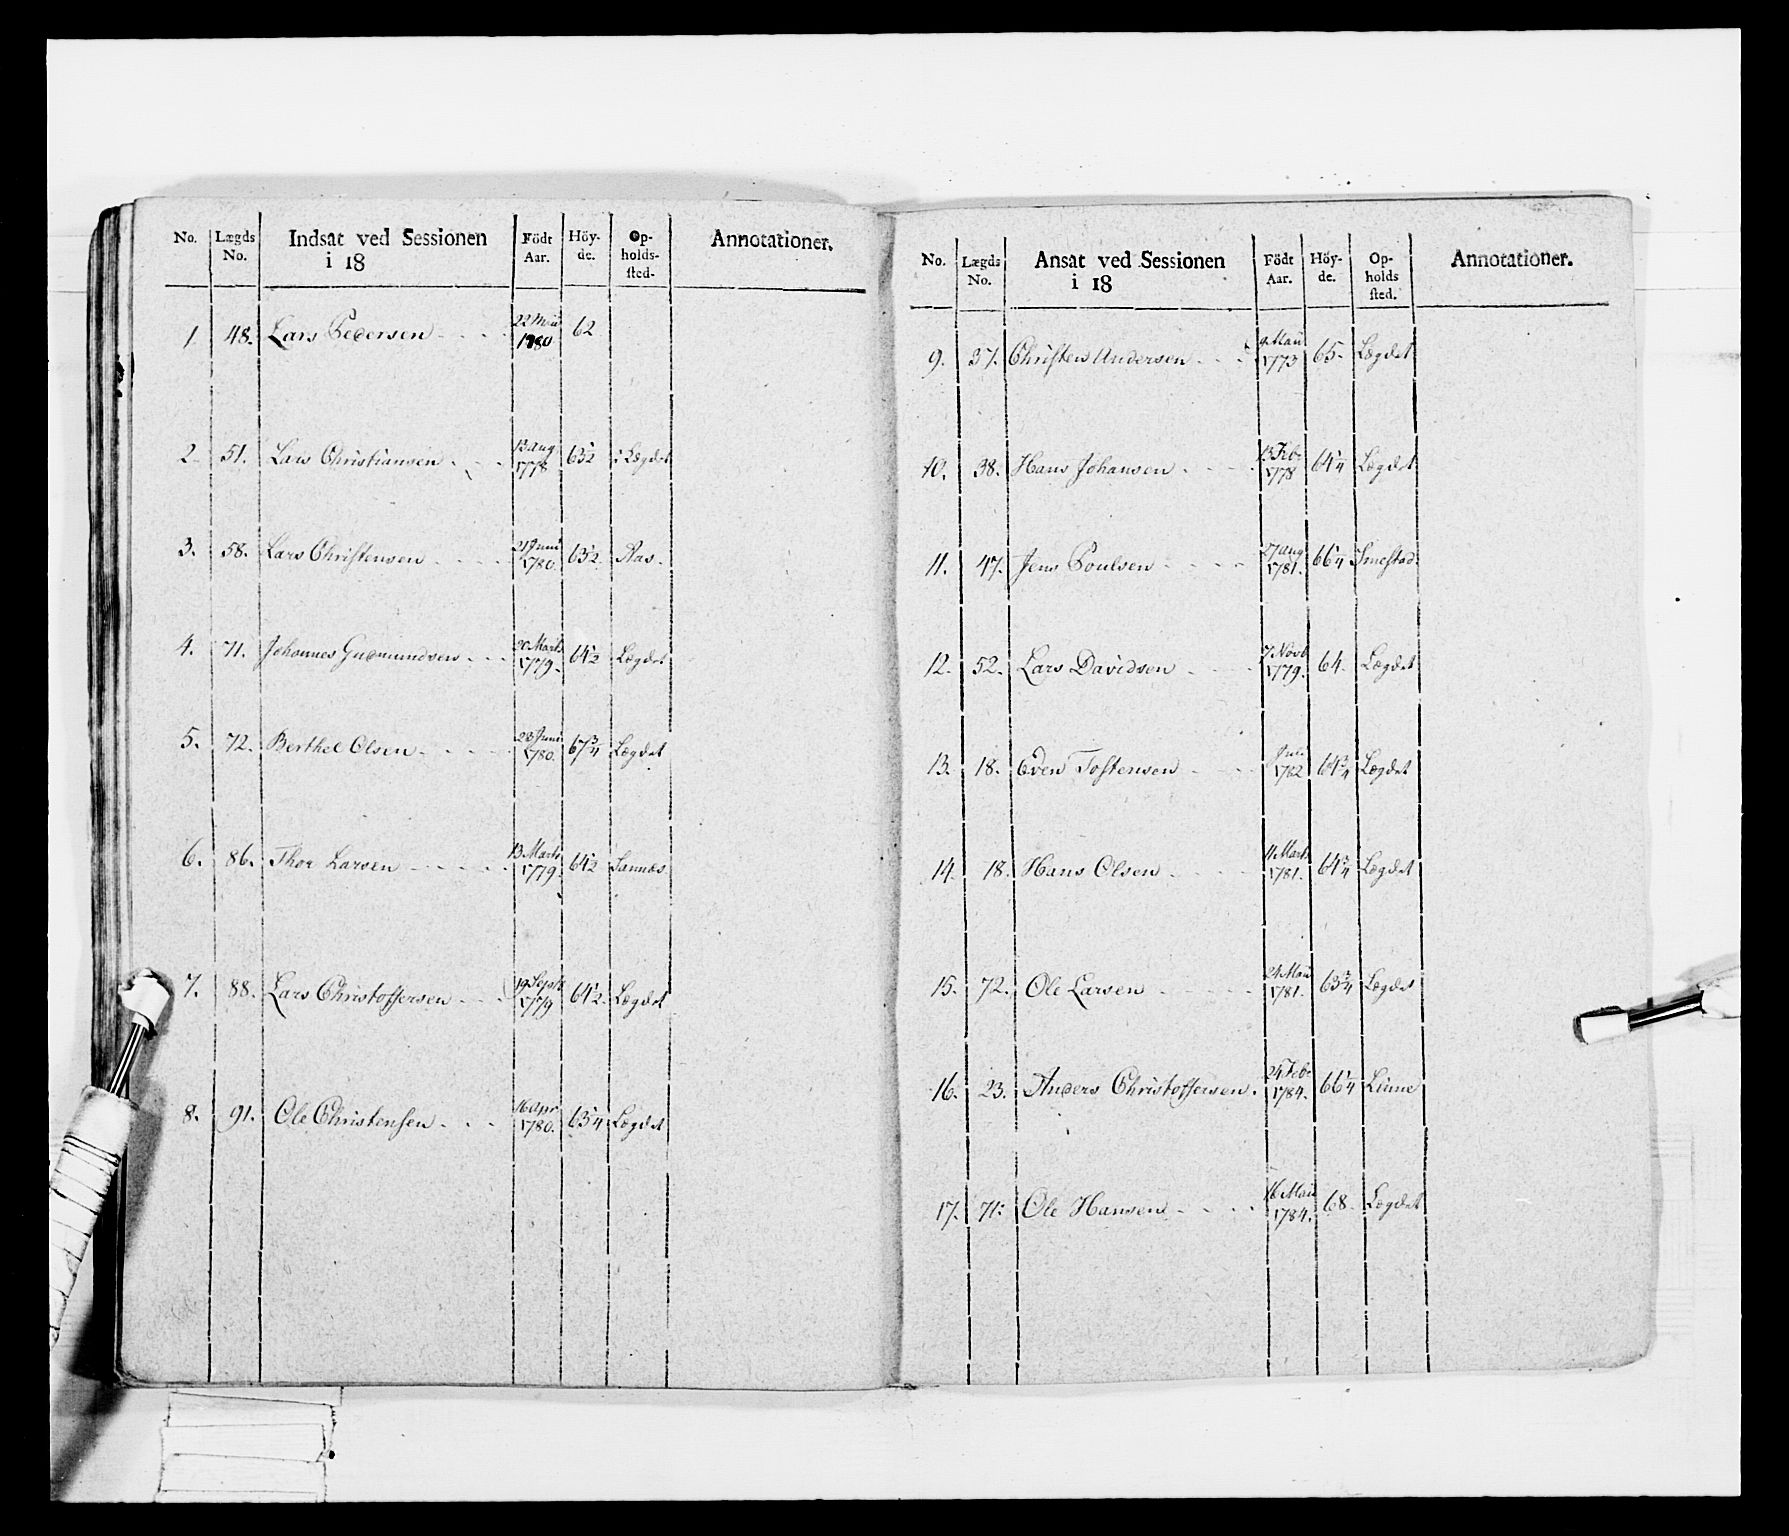 No. Lægds No. Indsat ved Sessionen i 18 Födt Aar. Höyde. Opholds-sted. Annotationer.
1 48. Lars Pedersen 22 Maii 1780 62
2 51. Lars Christiansen 13 Aug 1778 63½ i Lægdet
3. 58. Lars Christensen 21 Juni 1780. 63½ Aas.
4. 71. Johannes Gudmundsen 20 Marts 1779. 64½ Lægdet
5. 72. Berthel Olsen 28 Juni 1780. 67¾ Lægdet
6. 86. Thor Larsen 13 Marts 1779. 64½ Sannæs
7. 88. Lars Christoffersen 19 Septr 1779 64½ Lægdet
8. 91. Ole Christensen 16 Apr 1780. 63¼ Lægdet
No. Lægds No. Ansat ved Sessionen i 18 Födt Aar. Höyde. Opholds sted. Annotationer.
9. 37. Christen Andersen 9 Maii 1773 65. Lægdet
10. 38. Hans Johansen 13 Feb. 1778 64¼ Lægdet
11. 47. Jens Poulsen 27 Aug 1781. 66¼ Smestad.
12. 52. Lars Davidsen 7 Novb 1779. 64. Lægdet
13. 18. Even Tostensen 1782 64¾ Lægdet
14. 18. Hans Olsen 11 Marts 1781. 64¾ Lægdet
15. 72. Ole Larsen 24 Maii 1781. 63¾ Lægdet
16. 23. Anders Christoffersen. 24 Feb. 1784. 66¼ Linne
17. 71. Ole Hansen 16 Maii 1784. 68. Lægdet